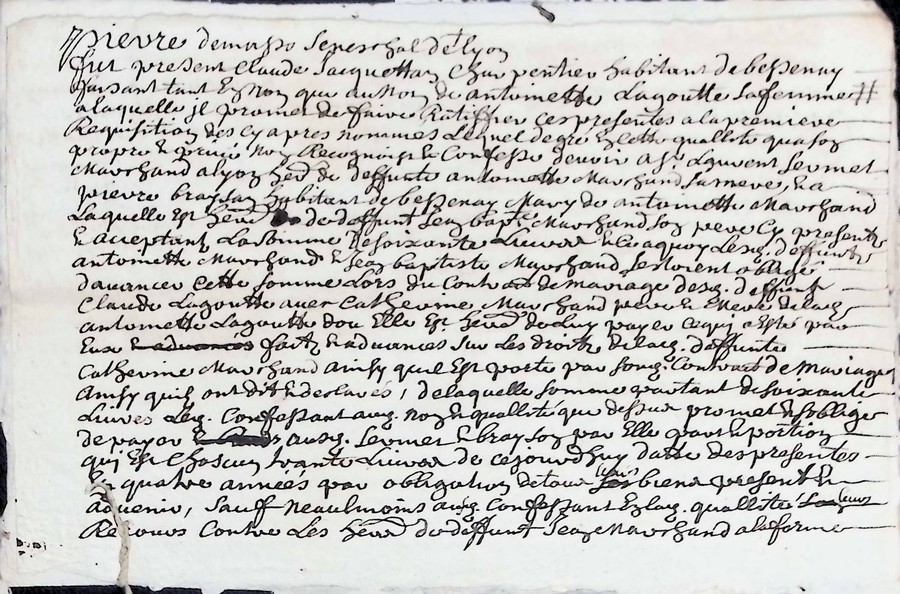 pierre demasso seneschal de Lyon
fut present Claude Jacquettan Charpentier habitant de bessenay
faisant tant En son que au nom de antoinette Lagoutte sa femme //
a laquelle jl promet de faire Ratiffier ces presentes a la premiere
Requisition des cy apres nommes Lequel de gré En lad. quallité qua son
propre & privé nom Recognoist & Confesse devoir a Sr Laurent
Marchand a lyon herr de deffunte antoinette Marchand sa mere, & a
pierre brasson habitant de bessenay Mary de antoinette Marchand
Laquelle Est herr de deffunt Jean bapte Marchand son pere Cy presents
& acceptant La somme de soixante Livres & laquoy Lesq. deffunts
antoinette Marchand & Jean baptiste Marchand sestoient obligé
davancer cette somme Lors du Contrat de mariage desq. deffunt
Claude Lagoutte avec Catherine Marchand pere & mere de lad.
antoinette Lagoutte dou Elle Est herr de Luy payer ce qui a Esté par
Eux & advances fait & advances sur Les droits de lad. deffunte
Catherine Marchand Ainsy quil Est porté par sond. Contract de Mariage
Ainsy quils ont dit & declaré, de laquelle somme partant de soixante
Livres Led. Confessant aud. nom & quallité que dessus promet & soblige
de payer & ausd. & brasson par Elle par & portion
qui Est Chascun trante Livres de ce jourdhuy datte des presentes
En quatre années par obligation de tous leurs biens presents &
advenir, Sauff Neaulmoins aud. Confessant En lad. quallité leurs
Recours Contre Les herr de deffunt Jean Marchand a la forme